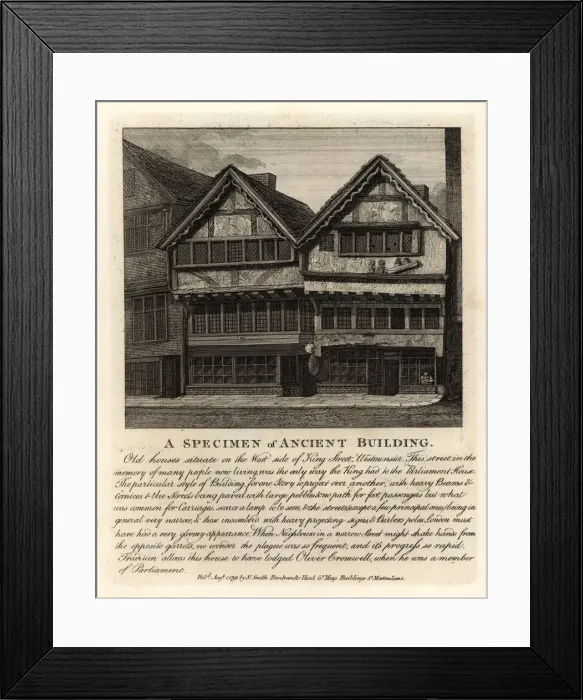 A SPECIMEN of ANCIENT BUILDING.
Old houses situate on the West side of King Street, Westminster. This street in the
memory of many people now living, was the only way the King had to the Parliament House.
The particular style of Building for one Story to project over another, with heavy Beams &
Cornices, & the Streets being paved with large pebbles & no path for foot passengers but what
was common for Carriages, scarce a lamp to be seen, & the streets (except a few principal ones) being in
general very narrow, & those incumber'd with heavy projecting signs & Barbers poles, London must
have had a very gloomy appearance. When Neighbours in a narrow street might shake hands from
the opposite garrets, no wonder the plague was so frequent, and its progress so rapid.
Tradition allows this house to have lodged Oliver Cromwell, when he was a member
of Parliament.
Pub.d Aug.t 1791 by N. Smith Rembrandts Head G.t Mays Buildings S.t Martins Lane.